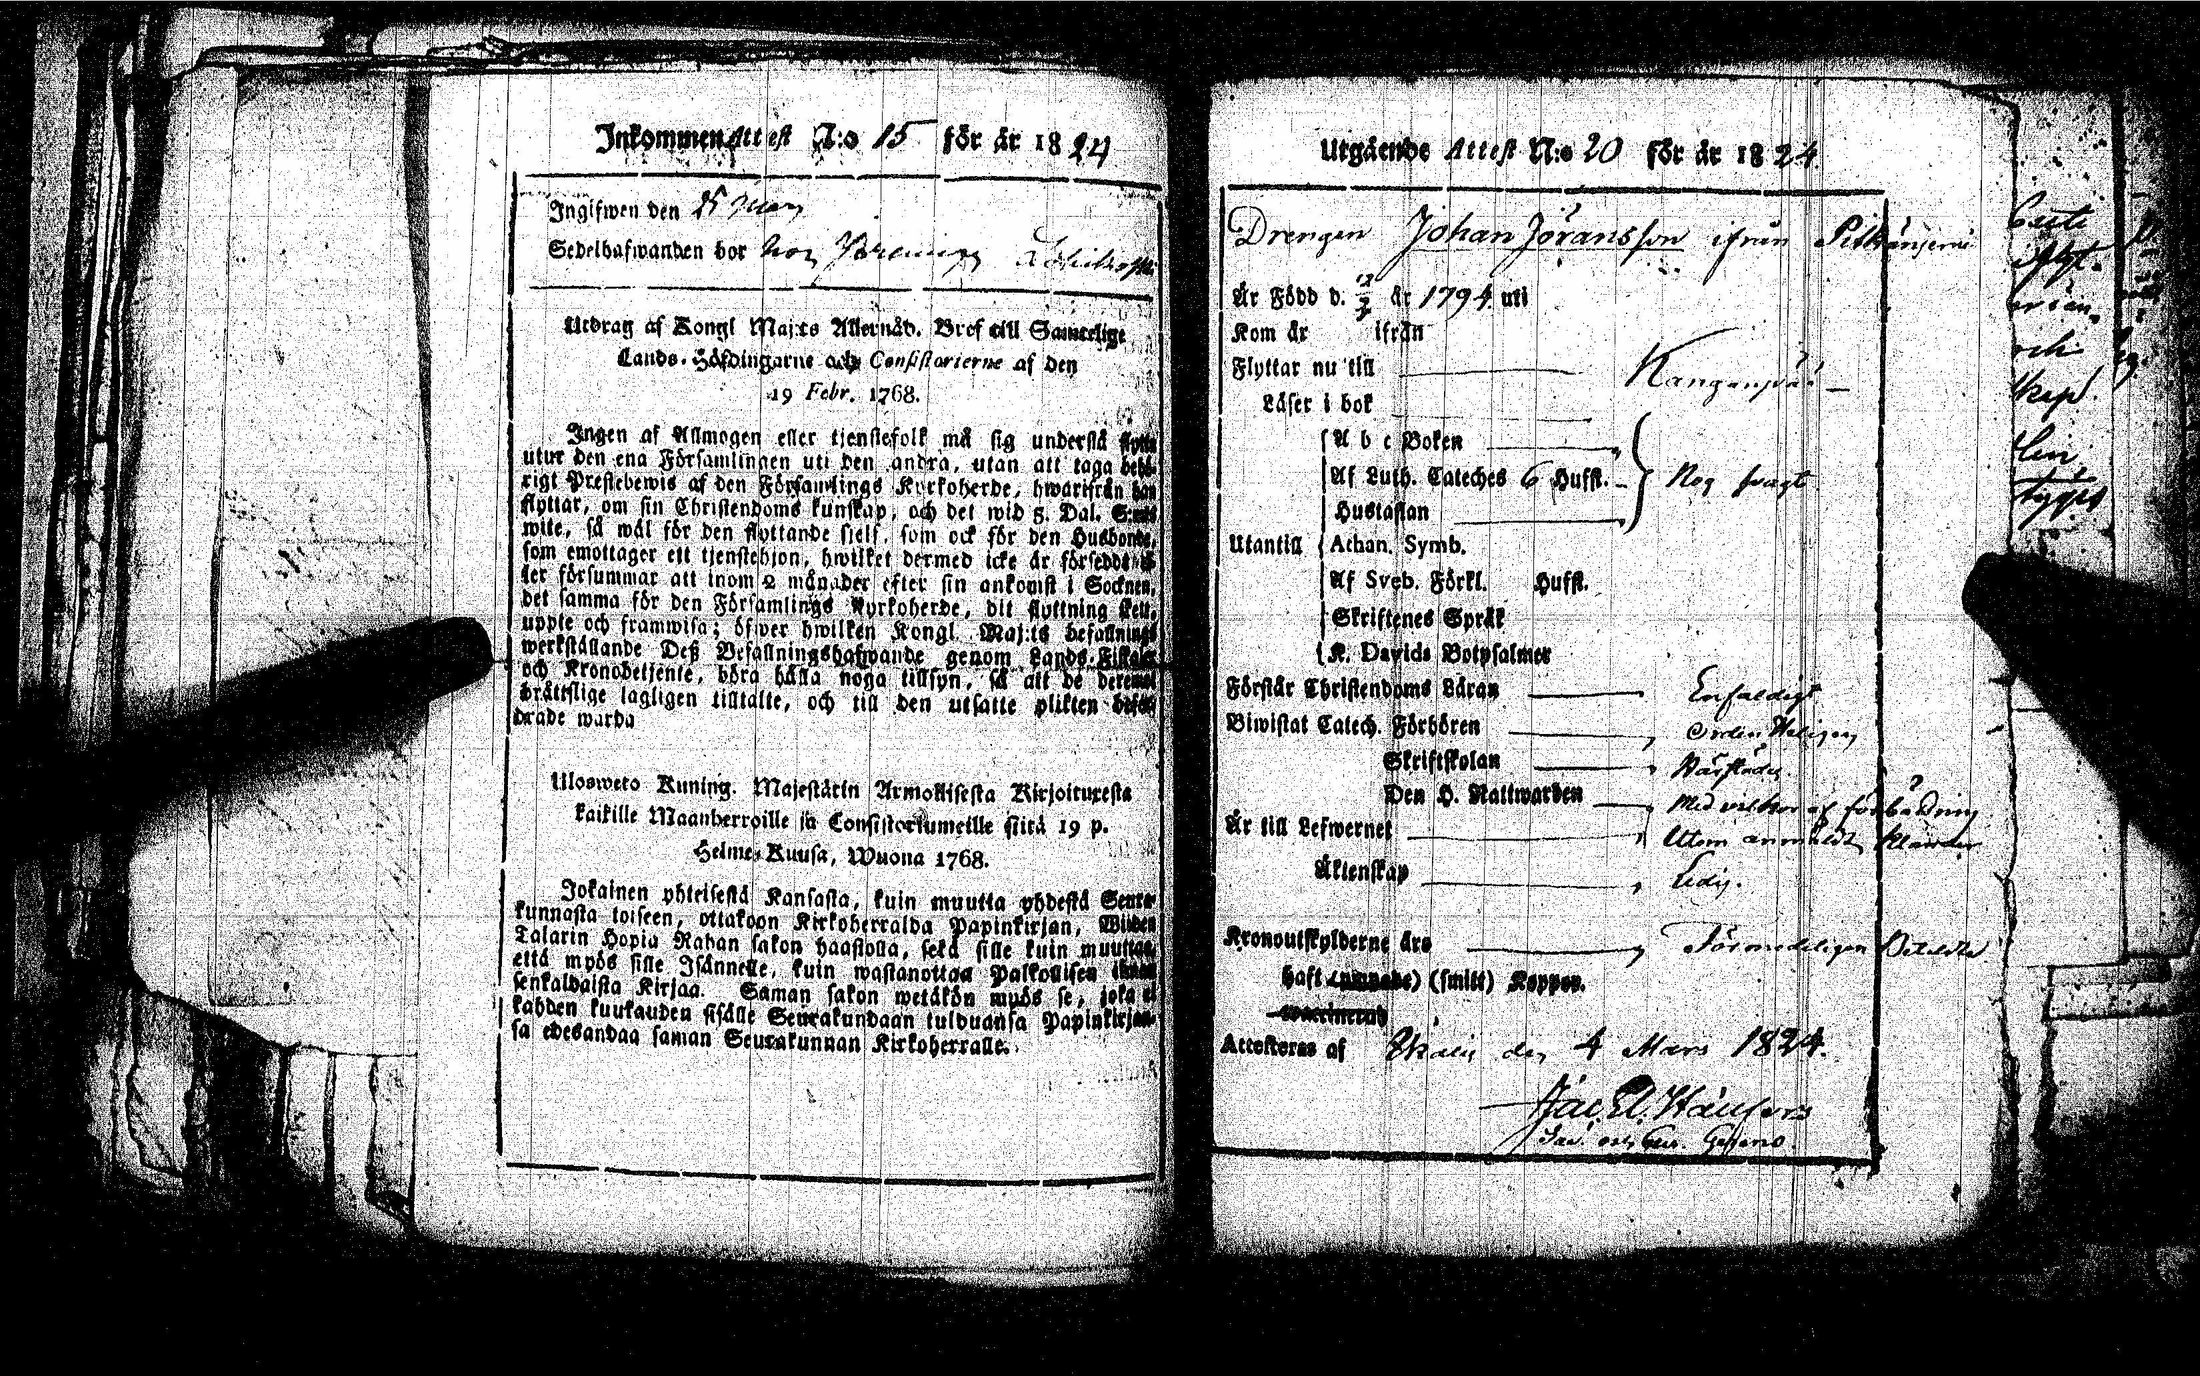 Inkommen Attest N:o 15 för år 1824
Ingifwen den 25 Mars
Sedelhafwanden bor hos
Utdrag af Kongl Maj:ts Allernåd. Bref till Samtelige
Lands-Höfdingarne och Consistorierne af den
19 Febr. 1768.
Ingen af Allmogen eller tjenstefolk må sig understå flytta
utur den ena Församlingen uti den andra, utan att taga behö-
rigt Prestebewis af den Församlings Kyrkoherde, hwarifrån han
flyttar, om sin Christendoms kunskap, och det wid 5. Dal. S:mts
wite, så wäl för den flyttande sielf, som ock för den Husbonde,
som emottager ett tjenstehjon, hwilket dermed icke är försedt, el-
ler försummar att inom 2 månader efter sin ankomst i Socknen,
det samma för den Församlings Kyrkoherde, dit flyttning skett,
uppte och framwisa; öfwer hwilken Kongl. Maj:ts befallnings
werkställande Deß Befallningshafwande genom Lands-Fiskaler
och Kronobetjente, böra hålla noga tillsyn, så att de deremot
bråttslige lagligen tilltalte, och till den utsatte plikten befor-
drade warda
Ulosweto Kuning. Majestätin Armollisesta Kirjoituxesta
kaikille Maanherroille ja Consistoriumeille siitä 19 p.
Helme-Kuusa, Wuona 1768.
Jokainen yhteisestä Kansasta, kuin muutta yhdestä Seura-
kunnasta toiseen, ottakoon Kirkoherralda Papinkirjan, Wiiden
Talarin Hopia Rahan sakon haastolla, sekä sille kuin muuttaa,
että myös sille Isännelle, kuin wastanottaa Palkollisen ilman
senkaldaista Kirjaa. Saman sakon wetäkön myös se, joka ei
kahden kuukauden sisälle Seurakundaan tulduansa Papinkirjan-
sa edesandaa saman Seurakunnan Kirkoherralle.
Utgående Attest N:o 20 för år 1824.
Drengen Johan Jöransson ifrån
Är Född d. år 1794 uti
Kom år ifrån
Flyttar nu till Kanganpää
Läser i bok
A b c Boken
Af Luth. Cateches 6 Hufst. Nog swagt
Hustaflan
Utantill Athan. Symb.
Af Sveb. Förkl. Hufst.
Skriftenes Språk
K. Davids Botpsalmer
Förstår Christendoms Läran Enfaldigt
Biwistat Catech. Förhören Ordenteligen
Skriftskolan
Den H. Nattwarden Med wilkor af förbädring
Är till Lefwernet Utom anmäldt klander
Äktenskap Ledig.
Kronoutskylderne äro Förmodeligen Betalde
Haft (smitt) Koppor.
Attesteras af Ikalis den 4 Mars 1824.